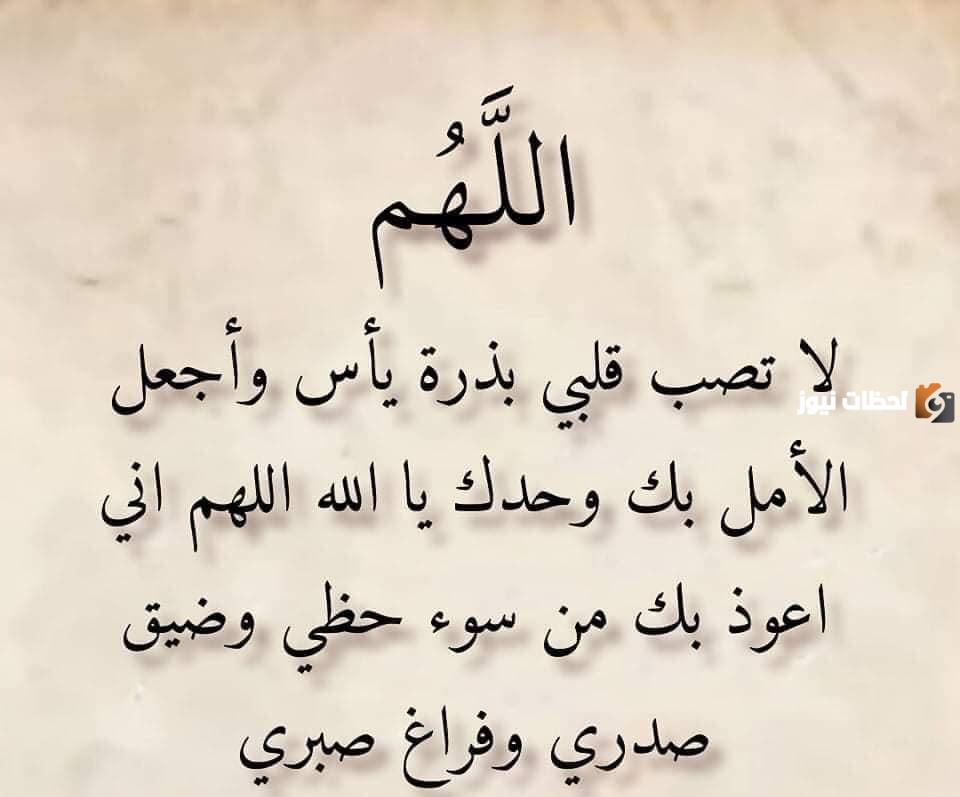 اللَّهُم
لا تصب قلبي بذرة يأس وأجعل
لحظات نيوز
الأمل بك وحدك يا الله اللهم اني
اعوذ بك من سوء حظي وضيق
صدري وفراغ صبري